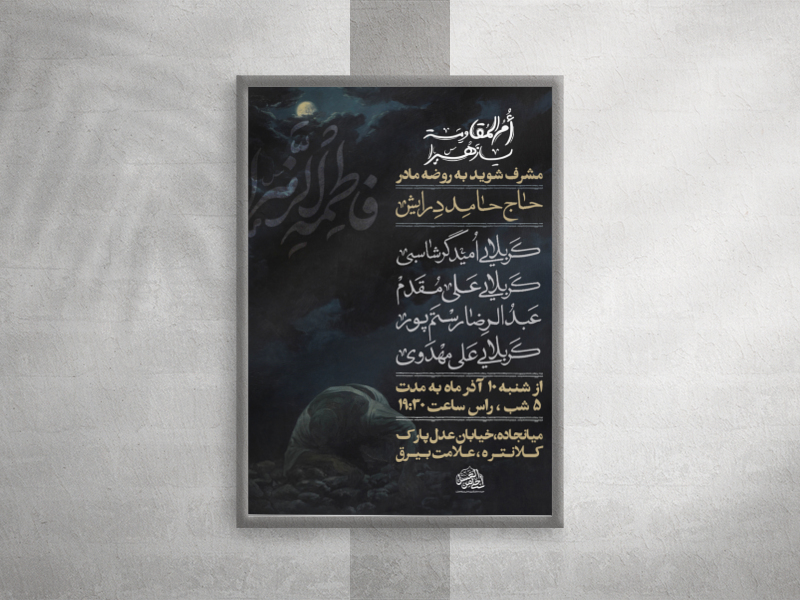 أم المقاومة
یا زهرا س
فاطمة الزهرا
مشرف شوید به روضه مادر
حاج حامد درایش
کَربلایی اُمید گرشاسبی
کَربلایی عَلی مُقَدَم
عَبدُالرِضا رستَم پور
کَربلایی عَلی مَهدَوی
از شنبه ۱۰ آذر ماه به مدت
۵ شب ، راس ساعت ۱۹:۳۰
میانجاده، خیابان عدل پارک
کلانتره ، علامت بیرق